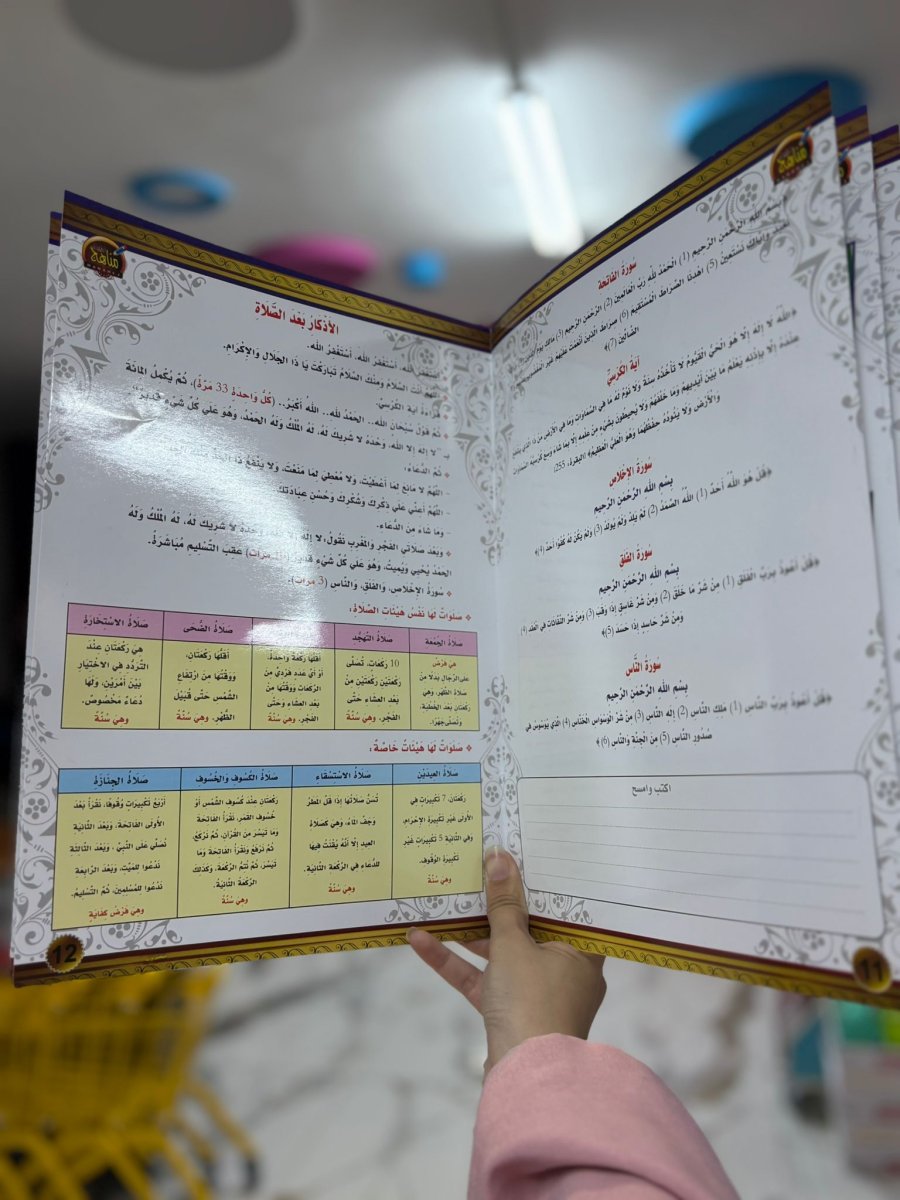 سُورَةُ الفَاتحَة
﴿بِسْمِ اللَّهِ الرَّحْمَنِ الرَّحِيمِ (1) الْحَمْدُ للَّه رَبِّ الْعَالَمِينَ (2) الرَّحْمَنِ الرَّحِيمِ (3) مَالك يَوْمِ
وَإيَّاكَ نَسْتَعِينُ (5) اهْدنَا الصِّرَاطَ الْمُسْتَقِيمَ (6) صِرَاطَ الَّذينَ أَنْعَمْتَ عَلَيْهِم غَيْرِ
الضَّالِّينَ (7)﴾
آيَةُ الكُرْسِيِّ
﴿اللَّهُ لَا إِلَهَ إِلَّا هُوَ الْحَيُّ الْقَيُّومُ لَا تَأْخُذُهُ سنَةٌ وَلَا نَوْمٌ لَهُ مَا فِي السَّمَاوَاتِ وَمَا فِي الْأَرْضِ مَن ذَا الَّذي يَشْفَعُ
عنْدَهُ إِلَّا بِإِذْنه يَعْلَمُ مَا بَيْنَ أَيْدِيهِمْ وَمَا خَلْفَهُمْ وَلَا يُحِيطُونَ بِشَيْءٍ مِنْ علْمه إِلَّا بِمَا شَاءَ وَسِعَ كُرْسِيُّهُ السَّمَاوَاتِ
وَالْأَرْضَ وَلَا يَئُودُهُ حفْظُهُمَا وَهُوَ الْعَلِيُّ الْعَظِيمُ﴾ (البقرة، 255).
سُورَةُ الإِخْلَاص
بِسْمِ اللَّه الرَّحْمَنِ الرَّحِيمِ
﴿قُلْ هُوَ اللَّهُ أَحَدٌ (1) اللَّهُ الصَّمَدُ (2) لَمْ يَلدْ وَلَمْ يُولَدْ (3) وَلَمْ يَكُن لَهُ كُفُوًا أَحَدٌ (4)﴾
سُورَةُ الفَلَق
بِسْمِ اللَّه الرَّحْمَنِ الرَّحِيمِ
﴿قُلْ أَعُوذُ بِرَبِّ الْفَلَقِ (1) مِنْ شَرِّ مَا خَلَقَ (2) وَمِنْ شَرِّ غَاسِقٍ إِذَا وَقَبَ (3) وَمِنْ شَرِّ النَّفَّاثَاتِ فِي الْعُقَد (4)
وَمِنْ شَرِّ حَاسِدٍ إِذَا حَسَدَ (5)﴾
سُورَةُ النَّاس
بِسْمِ اللَّه الرَّحْمَنِ الرَّحِيمِ
﴿قُلْ أَعُوذُ بِرَبِّ النَّاسِ (1) مَلك النَّاسِ (2) إِلَه النَّاسِ (3) مِنْ شَرِّ الْوَسْوَاسِ الْخَنَّاسِ (4) الَّذي يُوَسْوِسُ فِي
صُدُورِ النَّاسِ (5) مِنَ الْجِنَّة وَالنَّاسِ (6)﴾
اكتب وامسح
11
مناهج
الأَذْكَارُ بَعْدَ الصَّلَاة
أَسْتَغْفِرُ اللَّه، أَسْتَغْفِرُ اللَّه، أَسْتَغْفِرُ اللَّه.
أَنْتَ السَّلَامُ وَمِنْكَ السَّلَامُ تَبَارَكْتَ يَا ذَا الجَلَال وَالإِكْرَام.
قِرَاءَةُ آيَة الكُرْسِيِّ.
ثُمَّ قَوْلُ سُبْحَانَ اللَّه.. الحَمْدُ للَّه.. اللَّه أَكْبَرُ.. (كُلُّ وَاحدَة 33 مَرَّةً)، ثُمَّ يُكْمِلُ المائَةَ
بـ "لا إله إلا اللَّه، وَحْدَهُ لا شريك لَهُ، لَهُ المُلْكُ وَلَهُ الحَمْدُ، وَهُوَ عَلَى كُلِّ شَيْءٍ قَدير"
ثُمَّ الدُّعَاءُ:
- اللَّهُمَّ لَا مَانعَ لمَا أَعْطَيْتَ، وَلَا مُعْطيَ لمَا مَنَعْتَ، وَلَا يَنْفَعُ ذَا الجَدِّ منْكَ الجَدُّ.
- اللَّهُمَّ أَعنِّي عَلَى ذكْرِكَ وَشُكْرِكَ وَحُسْنِ عبَادَتكَ
- وَمَا شَاءَ منَ الدُّعَاء.
وَبَعْدَ صَلَاتَي الفَجْر وَالمَغْرب نَقُولُ: لا إله إلا وَحْدَهُ لا شَريكَ لَهُ، لَهُ المُلْكُ وَلَهُ
الحَمْدُ يُحْيي وَيُميتُ، وَهُوَ عَلَى كُلِّ شَيْء قَدير مَرَّات) عَقبَ التَّسْليم مُبَاشَرَةً.
سُورَةُ الإخلاص، وَالفَلَق، وَالنَّاس (3 مَرَّات).
صَلَوَاتٌ لَهَا نَفْسُ هَيْئَات الصَّلَاة:
صَلَاةُ الجُمعَة
هيَ فَرْضٌ
عَلَى الرِّجَال بَدَلًا منْ
صَلَاة الظُّهْر، وَهيَ
رَكْعَتَان بَعْدَ الخُطْبَة،
وَتُصَلَّى جَهْرًا.
صَلَاةُ التَّهَجُّد
10 رَكَعَات، تُصَلَّى
رَكْعَتَيْن رَكْعَتَيْن منْ
بَعْد العشَاء حَتَّى
الفَجْر، وَهيَ سُنَّةٌ
أَقَلُّهَا رَكْعَةٌ وَاحدَةٌ،
أَوْ أَيُّ عَدَدٍ فَرْديٍّ منَ
الرَّكَعَات وَوَقْتُهَا منْ
بَعْد العشَاء وَحَتَّى
الفَجْر، وَهيَ سُنَّةٌ
صَلَاةُ الضُّحَى
أَقَلُّهَا رَكْعَتَان،
وَوَقْتُهَا من ارْتفَاع
الشَّمْس حَتَّى قُبَيْل
الظُّهْر، وَهيَ سُنَّةٌ
صَلَاةُ الاسْتخَارَة
هيَ رَكْعَتَان عنْدَ
التَّرَدُّد في الاخْتيَار
بَيْنَ أَمْرَيْن، وَلَهَا
دُعَاءٌ مَخْصُوصٌ،
وَهيَ سُنَّةٌ
صَلَوَاتٌ لَهَا هَيْئَاتٌ خَاصَّةٌ:
صَلَاةُ العيدَيْن
رَكْعَتَان، 7 تَكْبيرَات في
الأُولَى غَيْر تَكْبيرَة الإحْرَام،
وَفي الثَّانيَة 5 تَكْبيرَات غَيْر
تَكْبيرَة الوُقُوف،
وَهيَ سُنَّةٌ
صَلَاةُ الاسْتسْقَاء
تُسَنُّ صَلَاتُهَا إذَا قَلَّ المَطَرُ
وَجَفَّ المَاءُ، وَهيَ كَصَلَاة
العيد إلَّا أَنَّهُ يَقْنُتُ فيهَا
للدُّعَاء في الرَّكْعَة الثَّانيَة.
وَهيَ سُنَّةٌ
صَلَاةُ الكُسُوف وَالخُسُوف
رَكْعَتَان عنْدَ كُسُوف الشَّمْس أَوْ
خُسُوف القَمَر، نَقْرَأُ الفَاتحَةَ
وَمَا تَيَسَّرَ منَ القُرْآن، ثُمَّ نَرْكَعُ،
ثُمَّ نَرْفَعُ وَنَقْرَأُ الفَاتحَةَ وَمَا
تَيَسَّرَ، ثُمَّ نُتمُّ الرَّكْعَةَ، وَكَذَلكَ
الرَّكْعَةُ الثَّانيَةُ.
وَهيَ سُنَّةٌ
صَلَاةُ الجَنَازَة
أَرْبَعُ تَكْبيرَات وُقُوفًا، نَقْرَأُ بَعْدَ
الأُولَى الفَاتحَةَ، وَبَعْدَ الثَّانيَة
نُصَلِّي عَلَى النَّبيِّ، وَبَعْدَ الثَّالثَة
نَدْعُوا للمَيِّت، وَبَعْدَ الرَّابعَة
نَدْعُوا للمُسْلمينَ، ثُمَّ التَّسْليمُ،
وَهيَ فَرْضُ كفَايَةٍ
12
مناهج